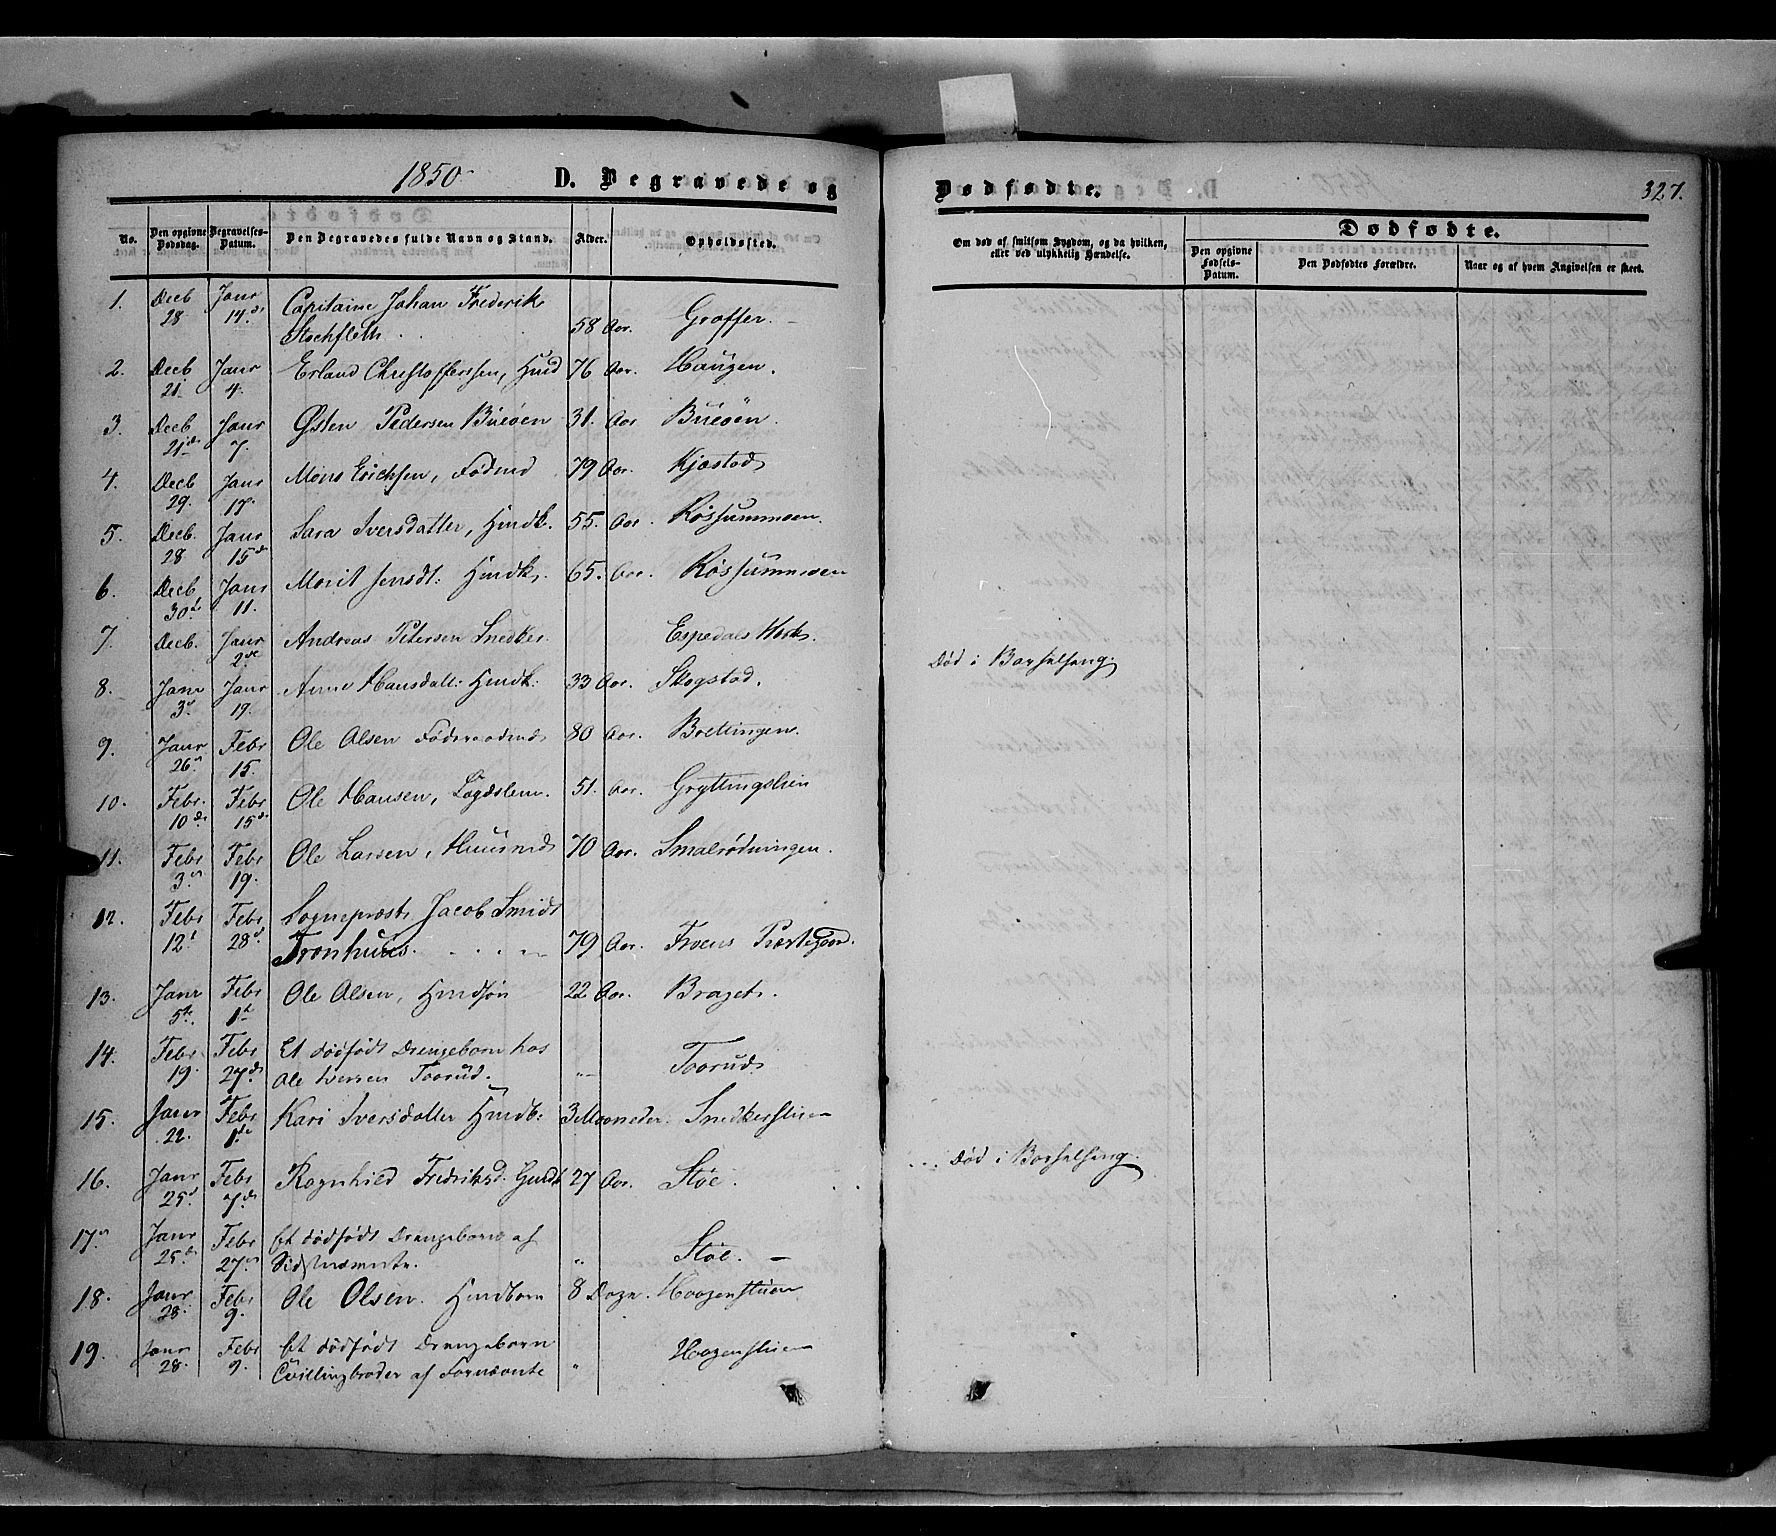 1850
D. Begravede og
Dødfødte.
327.
No.
Den opgivne Dødsdag.
Begravelses-Datum.
Den Begravedes fulde Navn og Stand.
Alder.
Opholdssted.
Om død af smitsom Sygdom, og da hvilken, eller ved ulykkelig Hændelse.
Dødfødte.
Den opgivne Fødsels-Datum.
Den Dødfødtes Forældre.
Naar og af hvem Angivelsen er skeet.
1. Decb 28 Janr 14. Capitaine Johan Frederik
Stockfleth 58 Aar. Graffer.
2. Decb 21. Janr 4. Erland Christoffersen, Hmd 76 Aar. Haugen.
3. Decb 21 Janr 7. Østen Pedersen Bueøen 31. Aar Bueøen.
4. Decb 29. Janr 17. Mons Erichsen, Fødmd 79 Aar. Kjæstad
5. Decb. 28 Janr 15 Sara Iversdatter, Hmdk. 55. Aar. Røssummoen.
6. Decb. 30 Janr 11. Marit Jensdt: Hmdk. 65. Aar. Røssummoen
7. Decb. Janr 2 Andreas Petersen Snedker Espedals Værk.
8. Janr 3 Janr 19. Anne Hansdatt: Hmdk: 33 Aar. Skogstad.
Død i Barselseng.
9. Janr 26 Febr 15. Ole Olsen Føderaadmd 80 Aar. Brettingen.
10. Febr. 10 Febr 15 Ole Hansen, Lægdslem. 51. Aar. Gryttingslien
11. Febr 3 Febr 19. Ole Larsen, Huusmd 70 Aar. Smalrødningen.
12. Febr 12 Febr 28 Sogneprest Jacob Smidt
Tronhuus. 79 Aar. Froens Præstegaard.
13. Janr 5 Febr 1 Ole Olsen, Hmdsøn 22 Aar. Braget.
14. Febr 19. Febr 27 Et dødfødt Drengebarn hos
Ole Iversen Taarud. " Taarud
15. Janr 22. Febr 1 Kari Iversdatter Hmdb: 3 Maaneder. Snedkerstuen
16. Janr 25 Febr 7 Ragnhild Fredriksd. Gmdk 27 Aar. Støe.
Død i Barselseng.
17 Janr 25 Febr 27 Et dødfødt Drengebarn af
Sidstnævnte. " Støe.
18. Janr 28. Febr 9. Ole Olsen. Hmdbarn 8 Dage. Haagenstuen
19. Janr 28. Febr 9. Et dødfødt Drengebarn
Tvillingbroder af Fornævnte " Haagenstuen